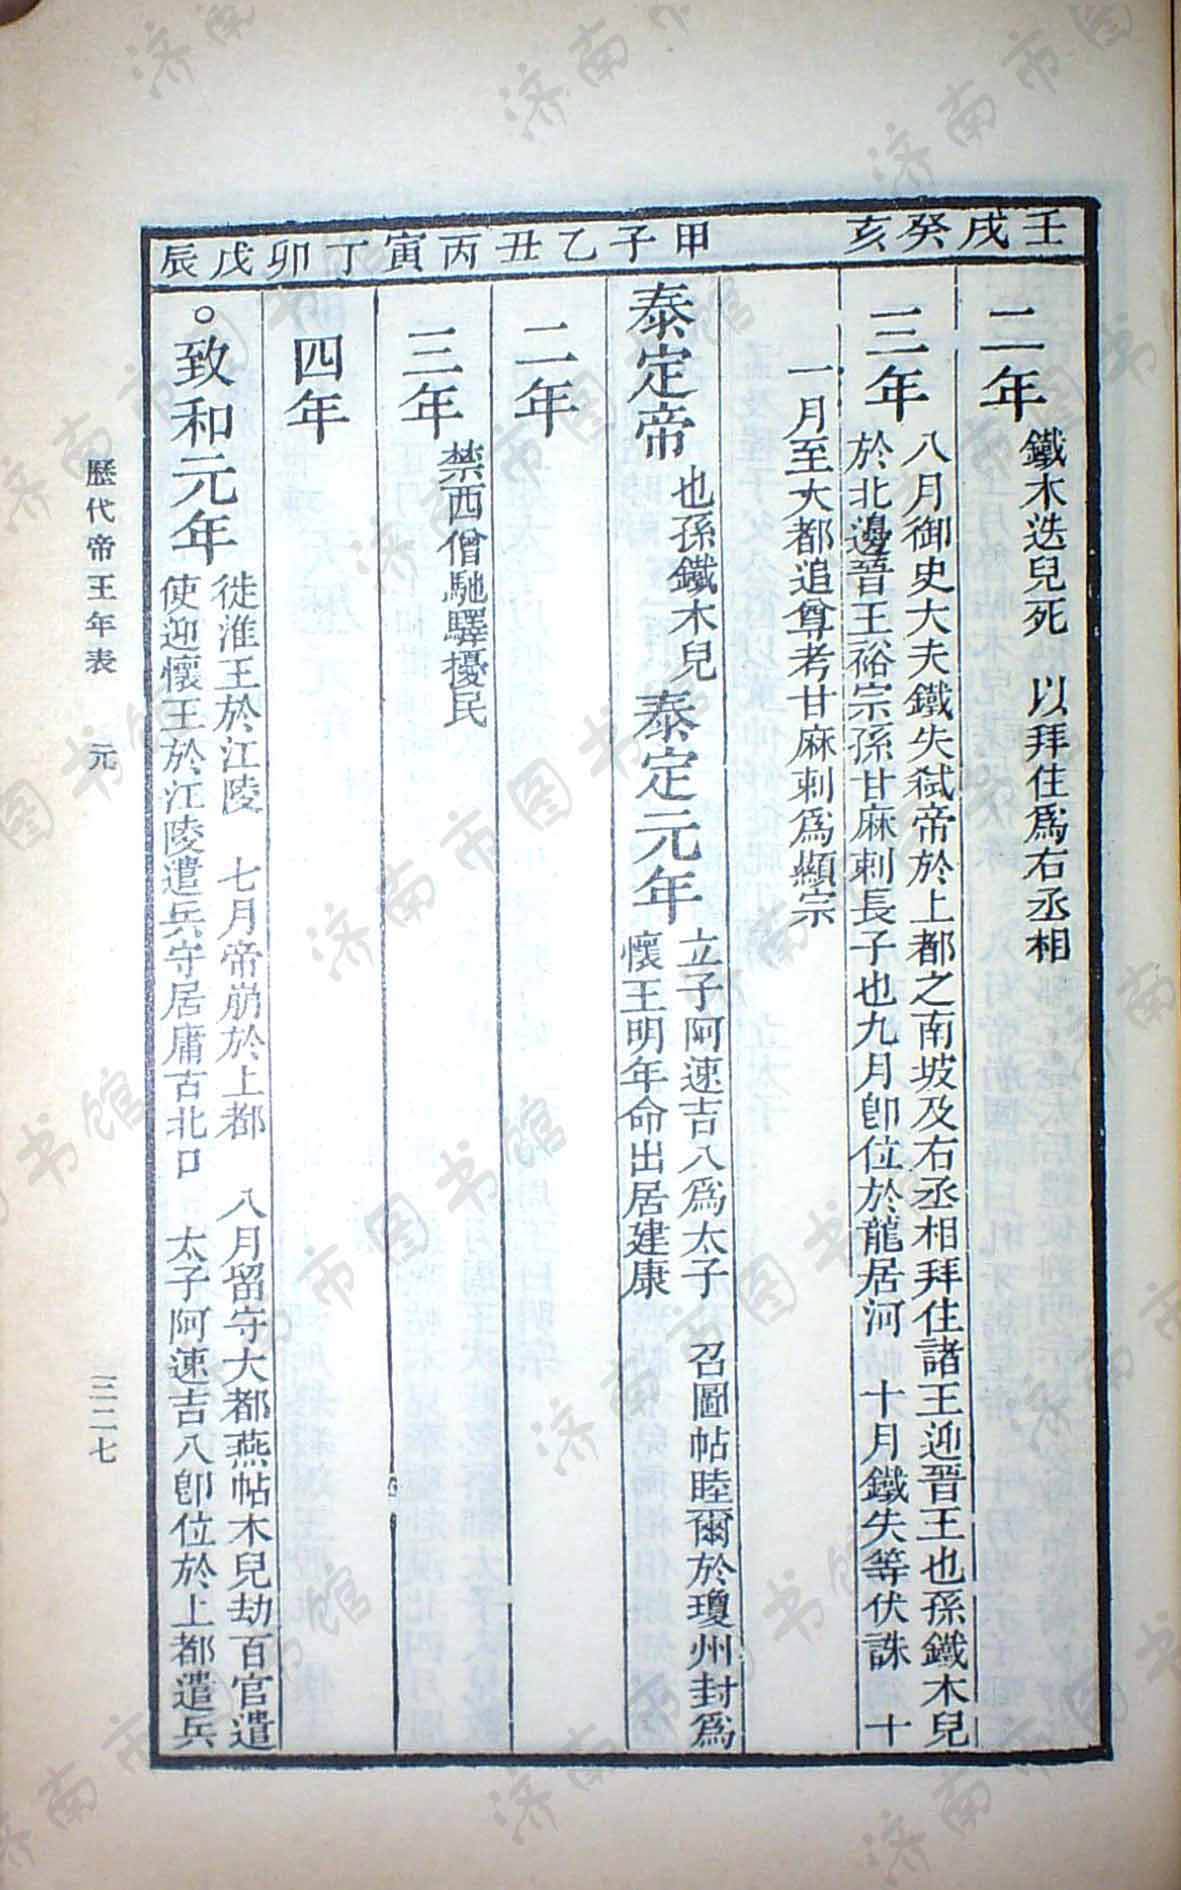 壬戌
二年
鐵木迭兒死　以拜住爲右丞相
癸亥
三年
八月御史大夫鐵失弑帝於上都之南坡及右丞相拜住諸王迎晉王也孫鐵木兒
於北邊晉王裕宗孫甘麻剌長子也九月卽位於龍居河　十月鐵失等伏誅　十
一月至大都追尊考甘麻剌爲顯宗
甲子
泰定帝
也孫鐵木兒
泰定元年
立子阿速吉八爲太子　召圖帖睦爾於瓊州封爲
懷王明年命出居建康
乙丑
二年
丙寅
三年
禁西僧馳驛擾民
丁卯
四年
戊辰
○致和元年
徙淮王於江陵　七月帝崩於上都　八月留守大都燕帖木兒劫百官遣
使迎懷王於江陵遣兵守居庸古北口　太子阿速吉八卽位於上都遣兵
歷代帝王年表　元
三二七
济南市图书馆